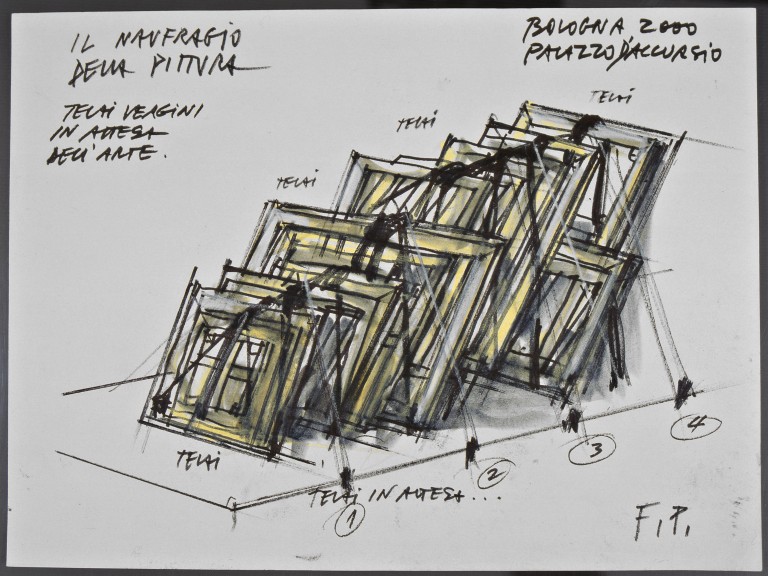 IL NAUFRAGIO
DELLA PITTURA
BOLOGNA 2000
PALAZZO D'ACCURSIO
TELAI VERGINI
IN ATTESA
DELL'ARTE.
TELAI
TELAI
TELAI
TELAI
TELAI IN ATTESA...
1
2
3
4
F.P.